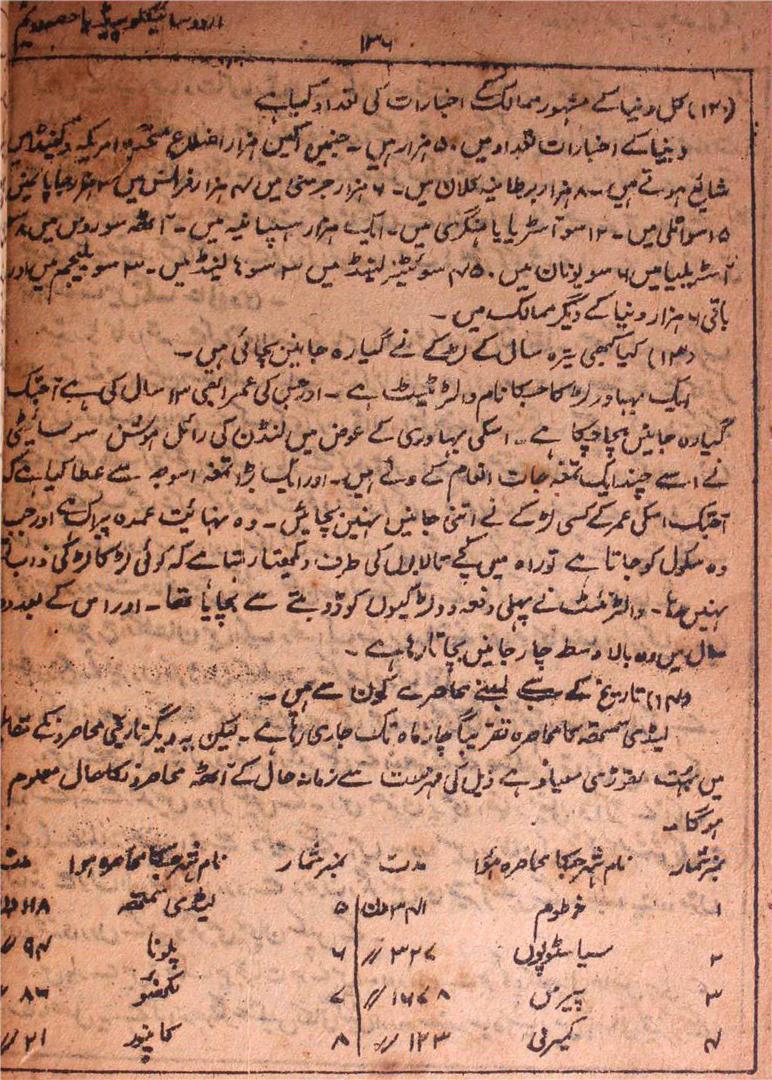 اردو سائیکلوپیڈیا حصہ دوئم
۱۳۶
(۱۲) کل دنیا کے مشہور ممالک کے اخبارات کی تعداد کیا ہے
دنیا کے اخبارات تعداد میں ۵۰ ہزار ہیں۔ جنمیں اکیس ہزار اضلاع متحدہ امریکہ و کینیڈا میں
شایع ہوتے ہیں۔ ۸ ہزار برطانیہ کلان میں۔ ۶ ہزار جرمنی میں ۴ ہزار فرانس میں ۲ ہزار جاپان میں
۱۵ سو اٹلی میں۔ ۱۲ سو آسٹریا یا ہنگری میں۔ ایک ہزار ہسپانیہ میں۔ ۸ سو روس میں
آسٹریلیا میں ۶ سو یونان میں ۴۵۰ سوئٹیزرلینڈ میں ۳ سو ہالینڈ میں۔ ۳ سو بلیجم میں اور
باقی ۶ ہزار دنیا کے دیگر ممالک میں۔
(۱۳) کیا کبھی تیرہ سال کے لڑکے نے گیارہ جانیں بچائی ہیں۔
ایک بہادر لڑکا جسکا نام والٹر ٹیٹ ہے۔ اور جس کی عمر ابھی ۱۳ سال کی ہے آجتک
گیارہ جانیں بچا چکا ہے۔ اسکی بہادری کے عوض میں لنڈن کی رائل ہیومن سوسائیٹی
نے اسے چند ایک تمغہ جات انعام کے دئے ہیں۔ اور ایک بڑا تمغہ اسوجہ سے عطا کیا ہے کہ
آجتک اسکی عمر کے کسی لڑکے نے اتنی جانیں نہیں بچائیں۔ وہ نہائت عمدہ پیراک ہے اور جب
وہ سکول کو جاتا ہے تو راہ میں کے تالابوں کی طرف دیکھتا رہتا ہے کہ کوئی لڑکا لڑکی ڈوب تو
نہیں رہا۔ والٹر نے پہلی دفعہ دو لڑکیوں کو ڈوبنے سے بچایا تھا۔ اور اس کے بعد وہ
سال میں وہ بالاوسط چار جانیں بچاتا رہا ہے۔
(۱۴) تاریخ کے سب سے لمبے محاصرے کون سے ہیں۔
لیڈی سمتھ کا محاصرہ تقریباً چار ماہ تک جاری رہا ہے۔ لیکن یہ دیگر تاریخی محاصروں کے مقابلہ
میں بہت تھوڑی میعاد ہے ذیل کی فہرست سے زمانہ حال کے آٹھ محاصروں کا حال معلوم
ہوگا۔
نمبر شمار نام شہر جسکا محاصرہ ہوا مدت نمبر شمار نام شہر جسکا محاصرہ ہوا مدت
۱ خرطوم ۳۴۱ دن ۵ لیڈی سمتھ ۱۱۸ دن
۲ سیاسٹوپول ۳۲۷ // ۶ پلونا ۹۴ //
۳ پیرس ۱۶۷ // ۷ لکھنؤ ۸۶ //
۴ کمبرلی ۱۲۳ // ۸ کانپور ۲۱ //